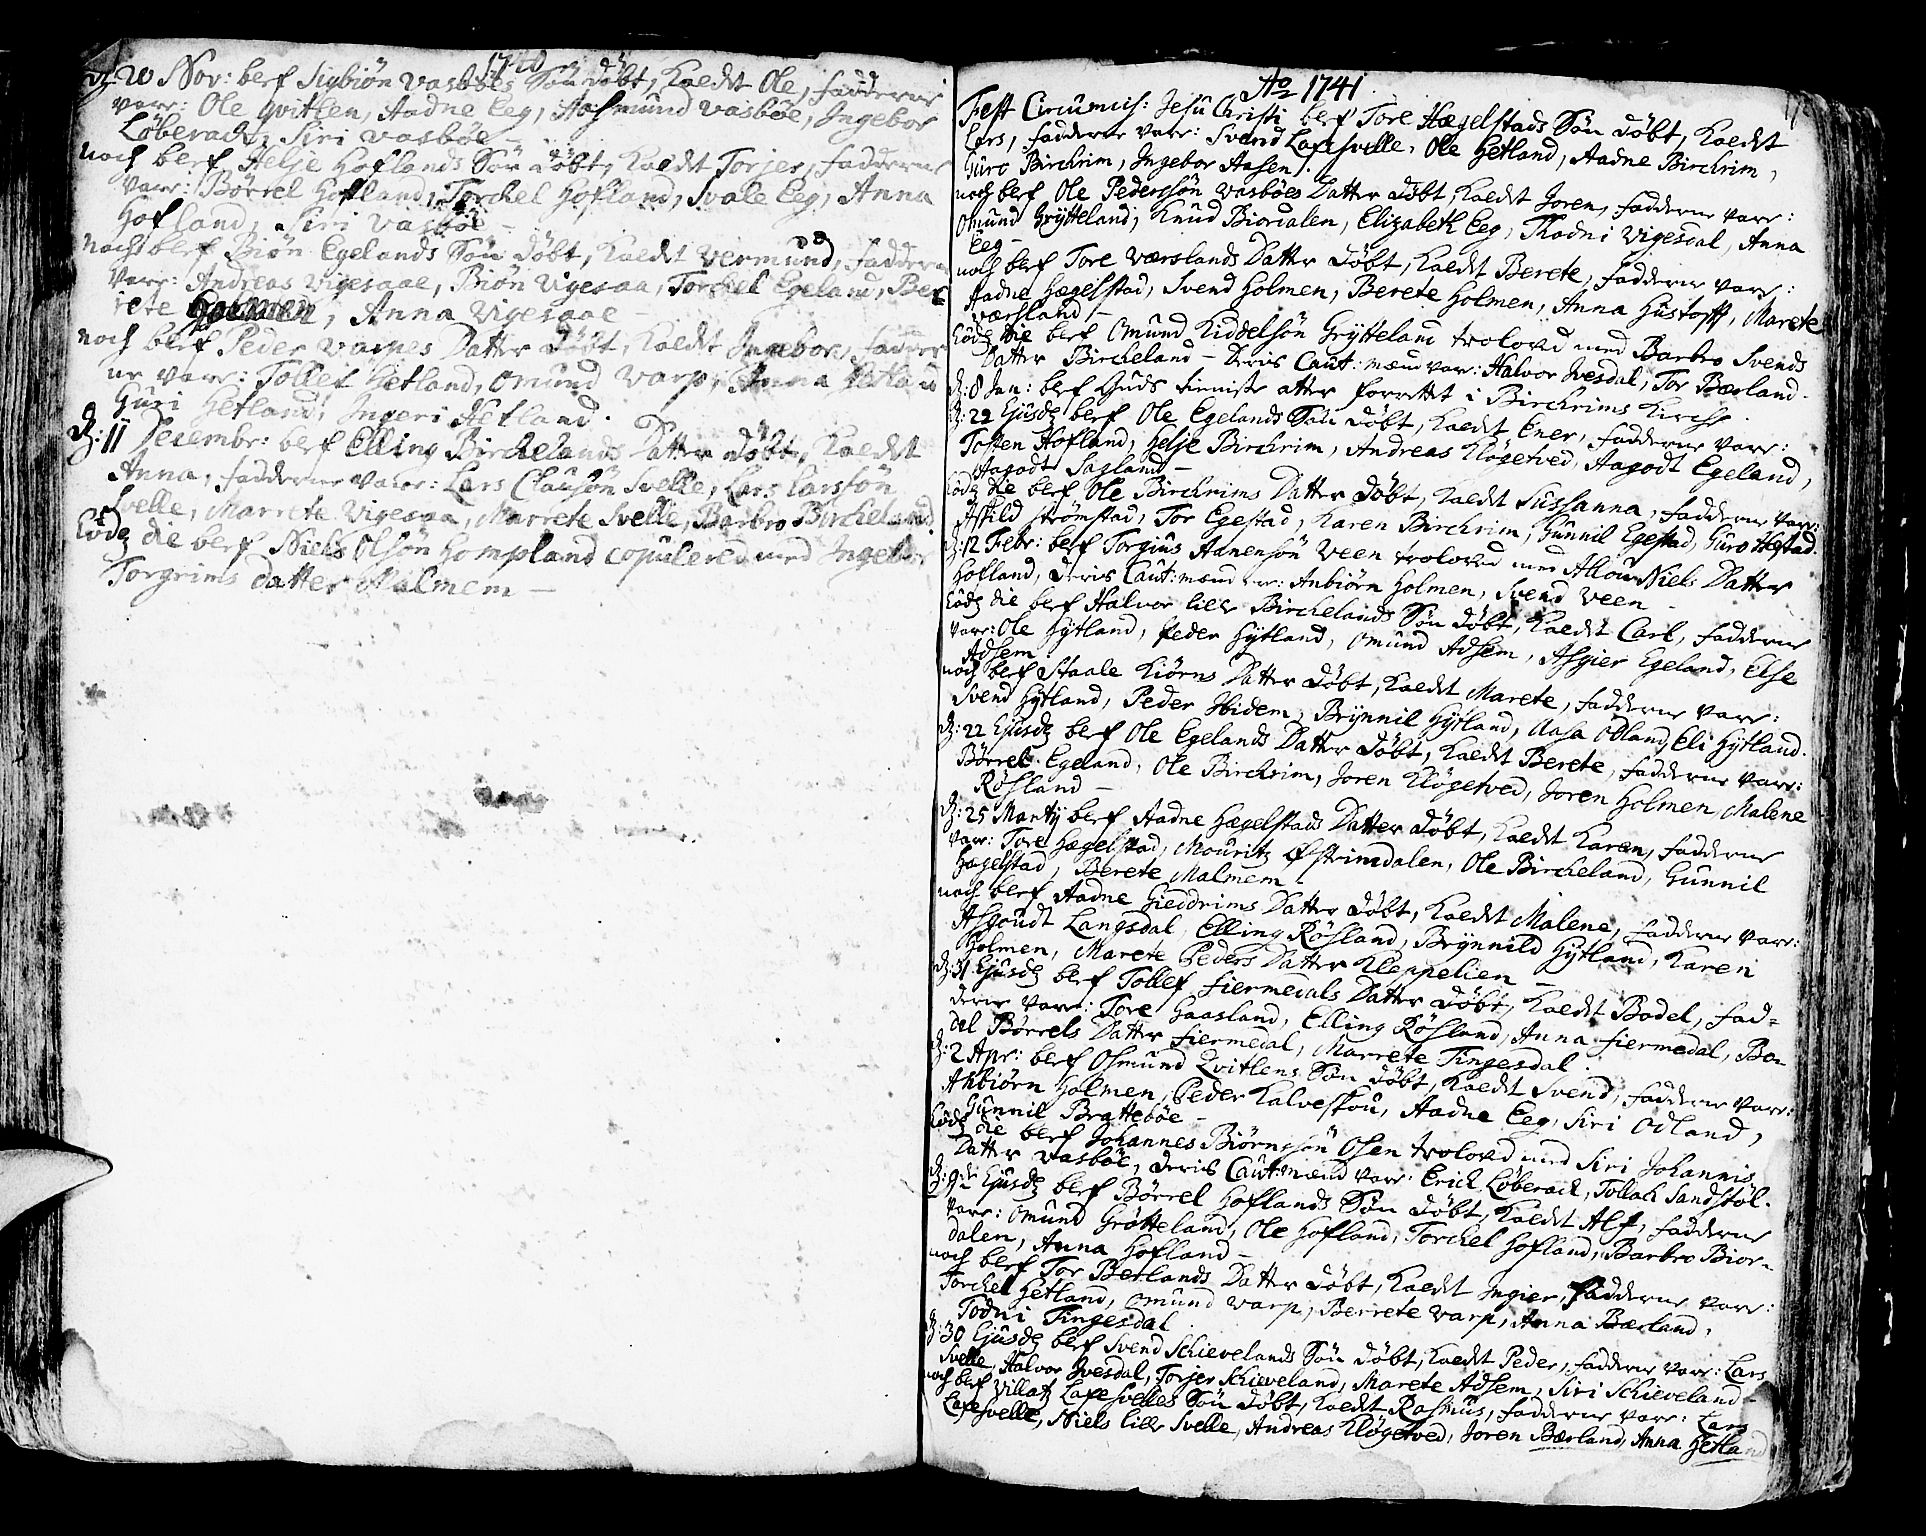 1740
d: 20 Nov: blef Sigbiön Vasböes Sön döbt, kaldt Ole, fadderne
vare: Ole Qvitlen, Aadne Eeg, Aasmund Vasböe, Ingebor
Löberack, Siri Vasböe –
noch blef Helje Hoflands Sön döbt, kaldt Torjer, fadderne
vare: Börrel Hofland, Torchel Hofland, Svale Eeg, Anna
Hofland, Siri Vasböe –
noch blef Biön Egelands Sön döbt, kaldt Vermund, faddern
vare: Andreas Vigesaae, Biön Vigesaa, Torchel Egeland, Be
rete Holmen, Anna Vigesaae
noch blef Peder Varpes Datter döbt, kaldt Ingebor, fadder
ne vare: Tollef Hetland, Omund Varp, Anna Hetland
Guri Hetland, Ingeri Hetland.
d: 11 Desembr: blef Elling Birchelands Datter döbt, kaldt
Anna, fadderne vare: Lars Clausön Svelle, Lars Larssön
Svelle, Marrete Vigesaa, Marrete Svelle, Barbro Bircheland
Eodg die blef Niels Olsön Hompland copulered med Ingebor
Torgrims Datter Malmem –
Ao 1741.
Fest Circumcis: Jesu Christi blef Tore Hægelstads Sön döbt, kaldt
Lars, fadderne vare: Svend Laxesvelle, Ole Hetland, Aadne Birchrim,
Guro Birchrim, Ingebor Aasen.
noch blef Ole Pedersön Vasböes Datter döbt, kaldt Joren, fadderne vare:
Omund Grytteland, Knud Biordalen, Elizabeth Eeg, Thodni Vigesdal, Anna
Eeg –
noch blef Tore Værslands Datter döbt, kaldt Berete, fadderne vare:
Aadne Hægelstad, Svend Holmen, Berete Holmen, Anna Hustoft, Marete
Værsland –
Eodg die blef Omund Kiddelsön Grytteland trolovd med Barbro Svends
Datter Bircheland – Deris Caut: mænd var: Halvor Ivesdal, Tor Bærland.
d: 8 Jan: blef Guds tieniste atter forrettet i Birchrims Kirche.
d: 22 Ejusdg blef Ole Egelands Sön döbt, kaldt Ener, fadderne vare:
Tosten Hofland, Helje Birchrim, Andreas Klögetved, Aagodt Egeland,
Aagodt Sagland –
Eodg die blef Ole Birchrims Datter döbt, kaldt Sussanna, fadderne vare:
Askild Strömstad, Tor Egestad, Karen Birchrim, Gunnil Egestad, Guro Hestad.
d: 12 Febr: blef Torgius Aanensön Veen trolovd med Allou Niels Datter
Hofland, deris Caut: mænd var: Anbiörn Holmen, Svend Veen –
Eodg die blef Halvor lille Birchelands Sön döbt, kaldt Carl, fadderne
vare: Ole Hytland, Peder Hytland, Omund Adsem, Asgier Egeland, Else
Adsem.
noch blef Staale Kiörns Datter döbt, kaldt Marete, fadderne vare:
Svend Hytland, Peder Ibidem, Brynnil Hytland, Aasa Odland, Eli Hytland.
d: 22 Ejusdg blef Ole Egelands Datter döbt, kaldt Berete, fadderne vare:
Börrel Egeland, Ole Birchrim, Joren Klögetved, Joren Holmen, Malene
Rösland –
d: 25 Martij blef Aadne Hægelstads Datter döbt, kaldt Karen, fadderne
vare: Tore Hægelstad, Mouritz Östrimdalen, Ole Bircheland, Gunnil
Hægelstad, Berete Malmem –
noch blef Aadne Gieddrims Datter döbt, kaldt Malene, fadderne vare:
Asgoudt Langsdal, Elling Rösland, Brynnild Hytland, Karen
Holmen, Marete Peders Datter Kleppelien –
d: 31 Ejusdg blef Tollef Fiermedals Datter döbt, kaldt Bodel, fad=
derne vare: Tore Gaasland, Elling Rösland, Anna Fiermedal, Bo-
del Börrels Datter Fiermedal, Marrete Tingesdal.
d: 2 Apr: blef Osmund Qvitlens Sön döbt, kaldt Svend, fadderne vare:
Anbiörn Holmen, Peder Kalveskou, Aadne Eeg, Siri Odland,
Gunnil Bratteböe –
Eodg die blef Johannes Biörnsön Osen trolovd med Siri Johannis
Datter Vasböe, deris Caut: mænd var: Erick Löberack, Tollach Sandstöl.
d: 9de Ejusdg blef Börrel Hoflands Sön döbt, kaldt Alf, fadderne
vare: Omund Grötteland, Ole Hofland, Torchel Hofland, Barbro Bior-
dalen, Anna Hofland –
noch blef Tor Berlands Datter döbt, kaldt Ingier, fadderne vare:
Torchel Hetland, Omund Varp, Berrete Varp, Anna Bærland,
Todni Tingesdal
d: 30 Ejusdg blef Svend Schievelands Sön döbt, kaldt Peder, fadderne vare: Lars
Svelle, Halvor Ivesdal, Torjer Schieveland, Marete Adsem, Siri Schieveland –
noch blef Villatz Laxesvelles Sön döbt, kaldt Rasmus, fadderne vare: Lars
Laxesvelle, Niels lille Svelle, Andreas Klögetved, Joren Bærland, Anna Hetland